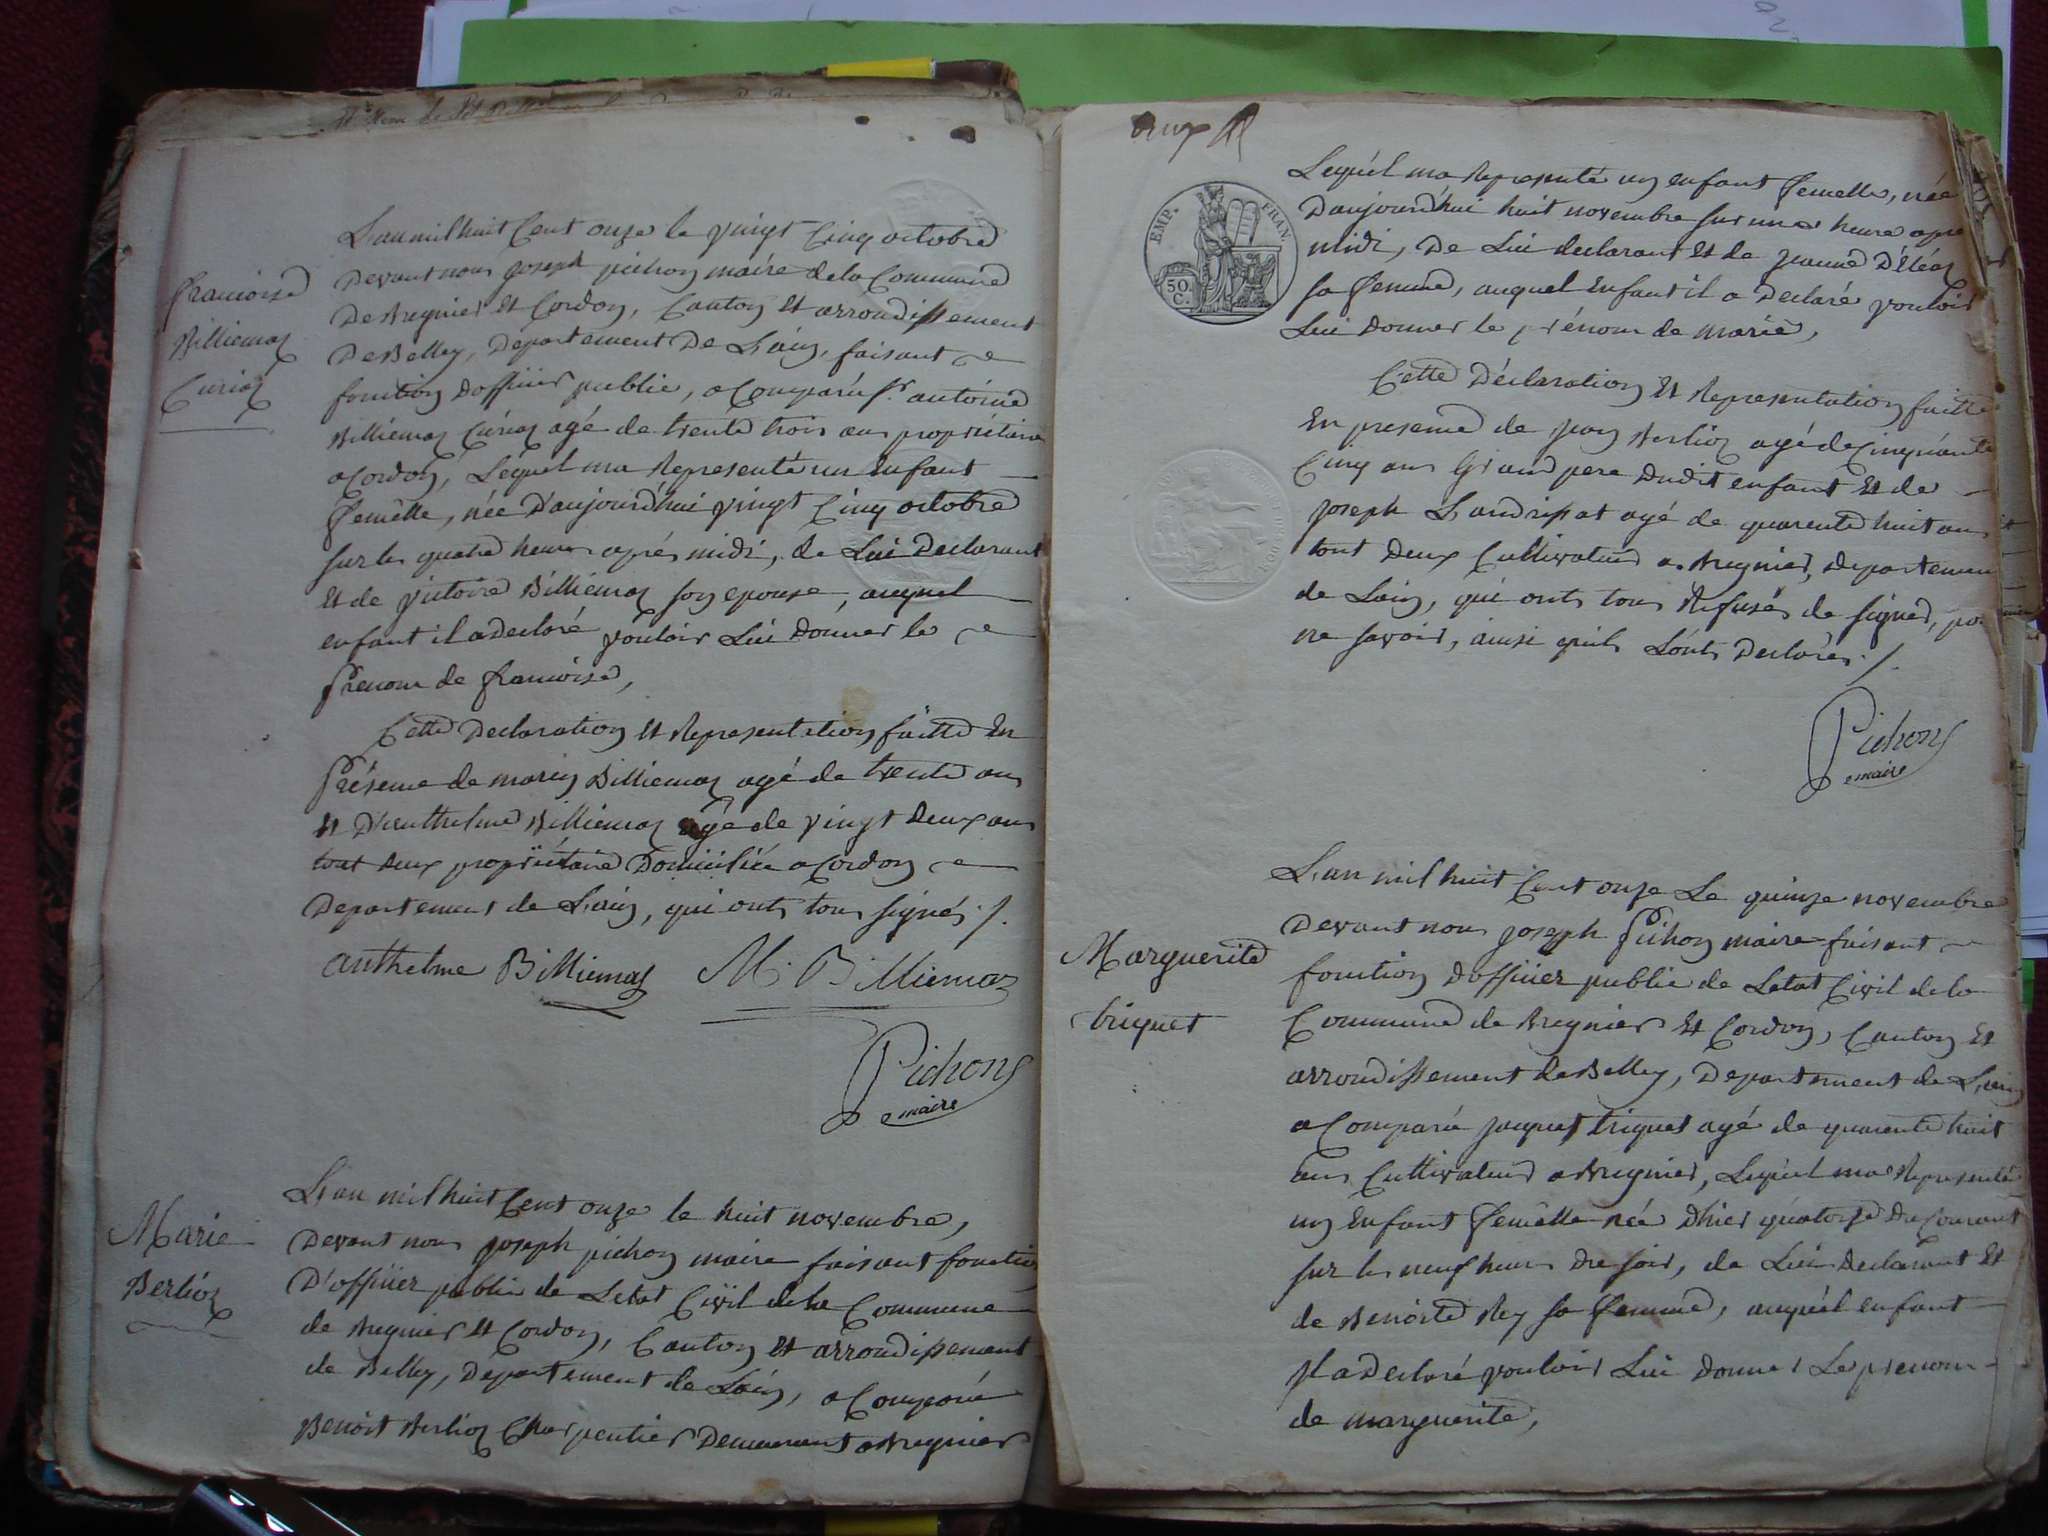 L'an mil huit Cent onze le vingt Cinq octobre
Devant nous joseph pichon maire de la Commune
De Bregnier et Cordon, Canton Et arrondissement
De Belley, Departement De L'ain, faisant
fonction D'officier public, a Comparu Sr. antoine
Billiemaz Curiaz agé de trente trois ans propriétaire
a Cordon, Lequel ma Representé un Enfant
femelle, née D'aujourd'hui vingt Cinq octobre
sur les quatre heures aprés midi, de Lui Declarant
Et de victoire Billiemaz son epouse, auquel
enfant il a Declaré vouloir Lui Donner le
Prenom de francoise,
Cette Declaration Et Representation faitte En
Présence de marin Billiemaz agé de trente ans
Et D'anthelme Billiemaz agé de vingt Deux ans
tout Deux propriétaire Domiciliée a Cordon
Departement de L'ain, qui onts tous signés ./.
anthelme Billiemaz M. Billiemaz
Pichon
maire
francoise
Billiemaz
Curiaz
L'an mil huit Cent onze le huit novembre,
Devant nous joseph pichon maire faisant fonction
D'officier public de Letat Civil dela Commune
de Bregnier Et Cordon, Canton Et arrondissement
de Belley, Departement de L'ain, a Comparu
Benoit Berlioz Charpentier Demeurant a Bregnier
Marie
Berlioz
EMP. FRAN.
50 C.
Lequél ma Representé un enfant femelle, née
D'aujourd'hui huit novembre sur une heure apre
midi, De Lui declarant Et de jeanne
sa femme, auquel Enfant il a Declaré vouloir
Lui Donner le prénom de marie,
Cette Déclaration Et Representation faitte
En presence de Berlioz agé de Cinquante
Cinq ans Grand pere Dudit enfant Et de
joseph Landrissat agé de quarente huit ans
tout Deux Cultivateur a Bregnier, Departement
de L'ain, qui onts tous Refusés de signer, pour
ne savoir, ainsi quils L'onts Declarés ./.
Pichon
maire
L'an mil huit Cent onze Le quinze novembre
Devant nous joseph Pichon maire faisant
fonction D'officier public de Letat Civil de la
Commune de Bregnier Et Cordon, Canton Et
arrondissement de Belley, Departement de L'ain
a Comparu jaques triquet agé de quarente huit
ans Cultivateur a Bregnier, Lequel ma Representé
un Enfant femelle née D'hier quatorze Du Courant
sur les neuf heures Du soir, de Lui Declarant Et
de Benoite Rey sa femme, auquel enfant
Il a Declaré vouloir Lui Donner Le prenom
de marguerite,
Marguerite
triquet